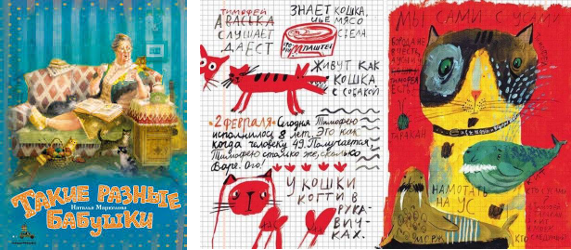 Наталья Маркелова
ТАКИЕ РАЗНЫЕ
БАБУШКИ
ТИМОФЕЙ
А ВАСЬКА
СЛУШАЕТ
ДА ЕСТ
ЗНАЕТ КОШКА,
ЧЬЕ МЯСО
СЪЕЛА
ПАШТЕТ
ЖИВУТ КАК
КОШКА
С СОБАКОЙ
2 ФЕВРАЛЯ. Сегодня Тимофею
исполнилось 8 лет. Это как
когда человеку 49. Получается
Тимофею столько же, сколько
Боре. Ого!
У КОШКИ
КОГТИ В
РУКА-
ВИЧ-
КАХ.
МЫ САМИ С УСАМИ
ТАРАКАН
НАМОТАТЬ
НА УС
МОРЖ